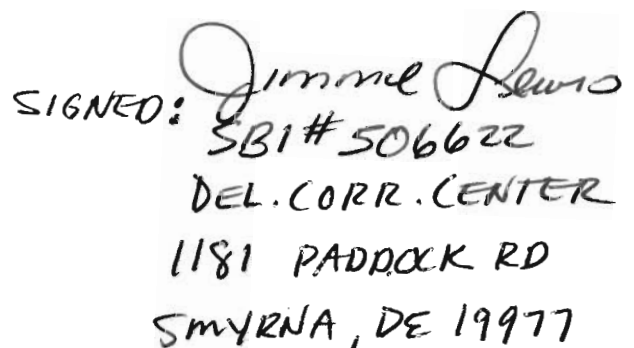 SIGNED: Jimmie Lewis
SBI# 506622
DEL. CORR. CENTER
1181 PADDOCK RD
SMYRNA, DE 19977